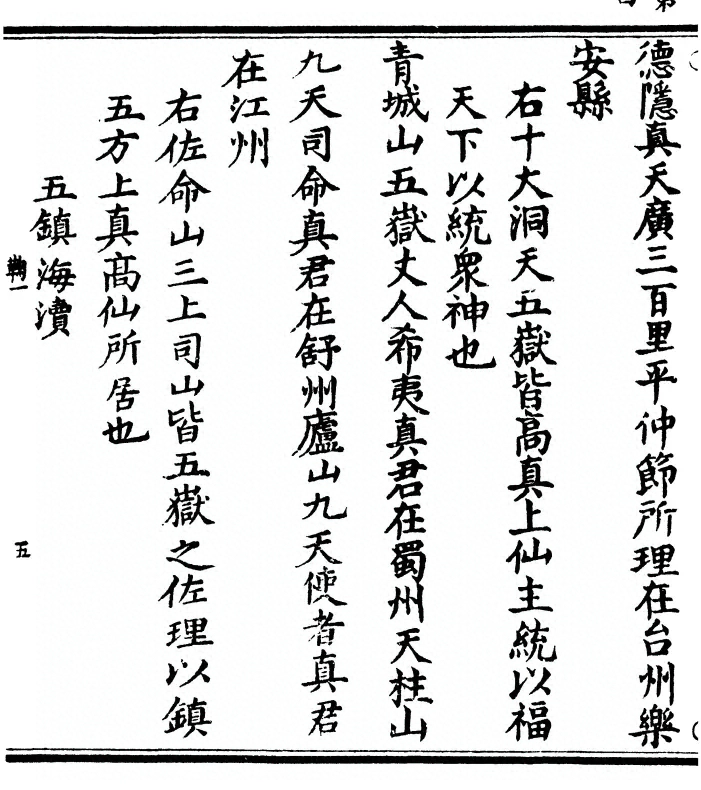 德隱真天廣三百里平仲節所理在台州樂
安縣
右十大洞天五嶽皆高真上仙主統以福
天下以統衆神也
青城山五嶽丈人希夷真君在蜀州天柱山
九天司命真君在舒州廬山九天使者真君
在江州
右佐命山三上司山皆五嶽之佐理以鎮
五方上真高仙所居也
五鎮海瀆
五